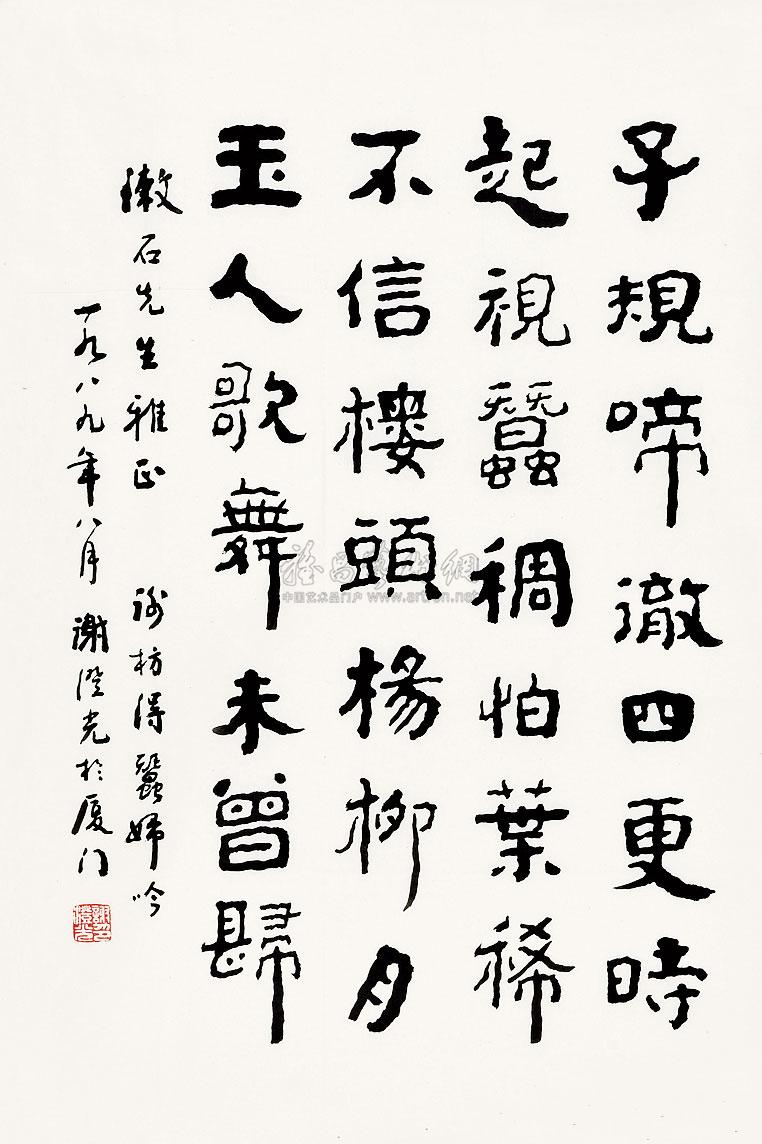 子規啼徹四更時
起視蠶稠怕葉稀
不信樓頭楊柳月
玉人歌舞未曾歸
漱石先生雅正 謝枋得蠶婦吟
一九八九年八月 謝澄光於厦门
中国艺术品门户 www.artron.net